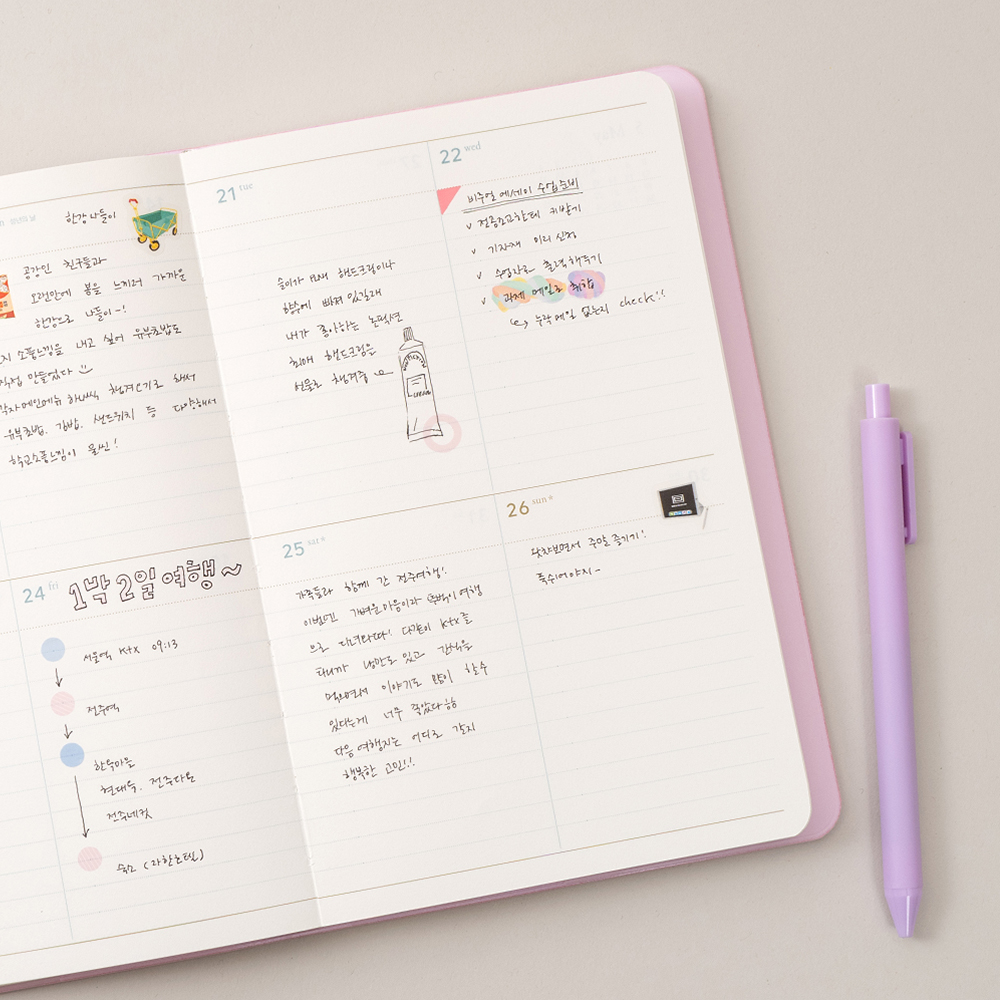 한강 나들이
공강인 친구들과
오랜만에 봄을 느끼러 가까운
한강으로 나들이~!
소풍느낌을 내고 싶어 유부초밥도
직접 만들었다
각자 메인메뉴 하나씩 챙겨오기로 해서
유부초밥, 김밥, 샌드위치 등 다양해서
학교소풍느낌이 물씬!
21 tue
숨이가 요새 핸드크림이나
향수에 빠져 있길래
내가 좋아하는 논픽션
최애 핸드크림은
선물로 챙겨줌
CREAM
22 wed
비주얼 에세이 수업 준비
v 전공조교한테 키받기
v 기자재 미리 신청
v 수업자료 출력해두기
v 과제 메일로 취합
누락메일 없는지 check!!
24 fri
1박 2일 여행~
서울역 ktx 09:13
전주역
한옥마을
현대옥, 전주다운
전주네컷
숙소 (라한호텔)
25 sat
가족들과 함께 간 전주여행!
이번엔 가벼운 마음이라 뚜벅이 여행
으로 다녀왔다! 다같이 ktx를
타니까 낭만도 있고 간식을
먹으면서 이야기도 많이 할 수
있다는게 너무 좋았다 ㅎㅎ
다음 여행지는 어디로 갈지
행복한 고민!!
26 sun
왓챠보면서 주말 즐기기!
푹쉬어야지~